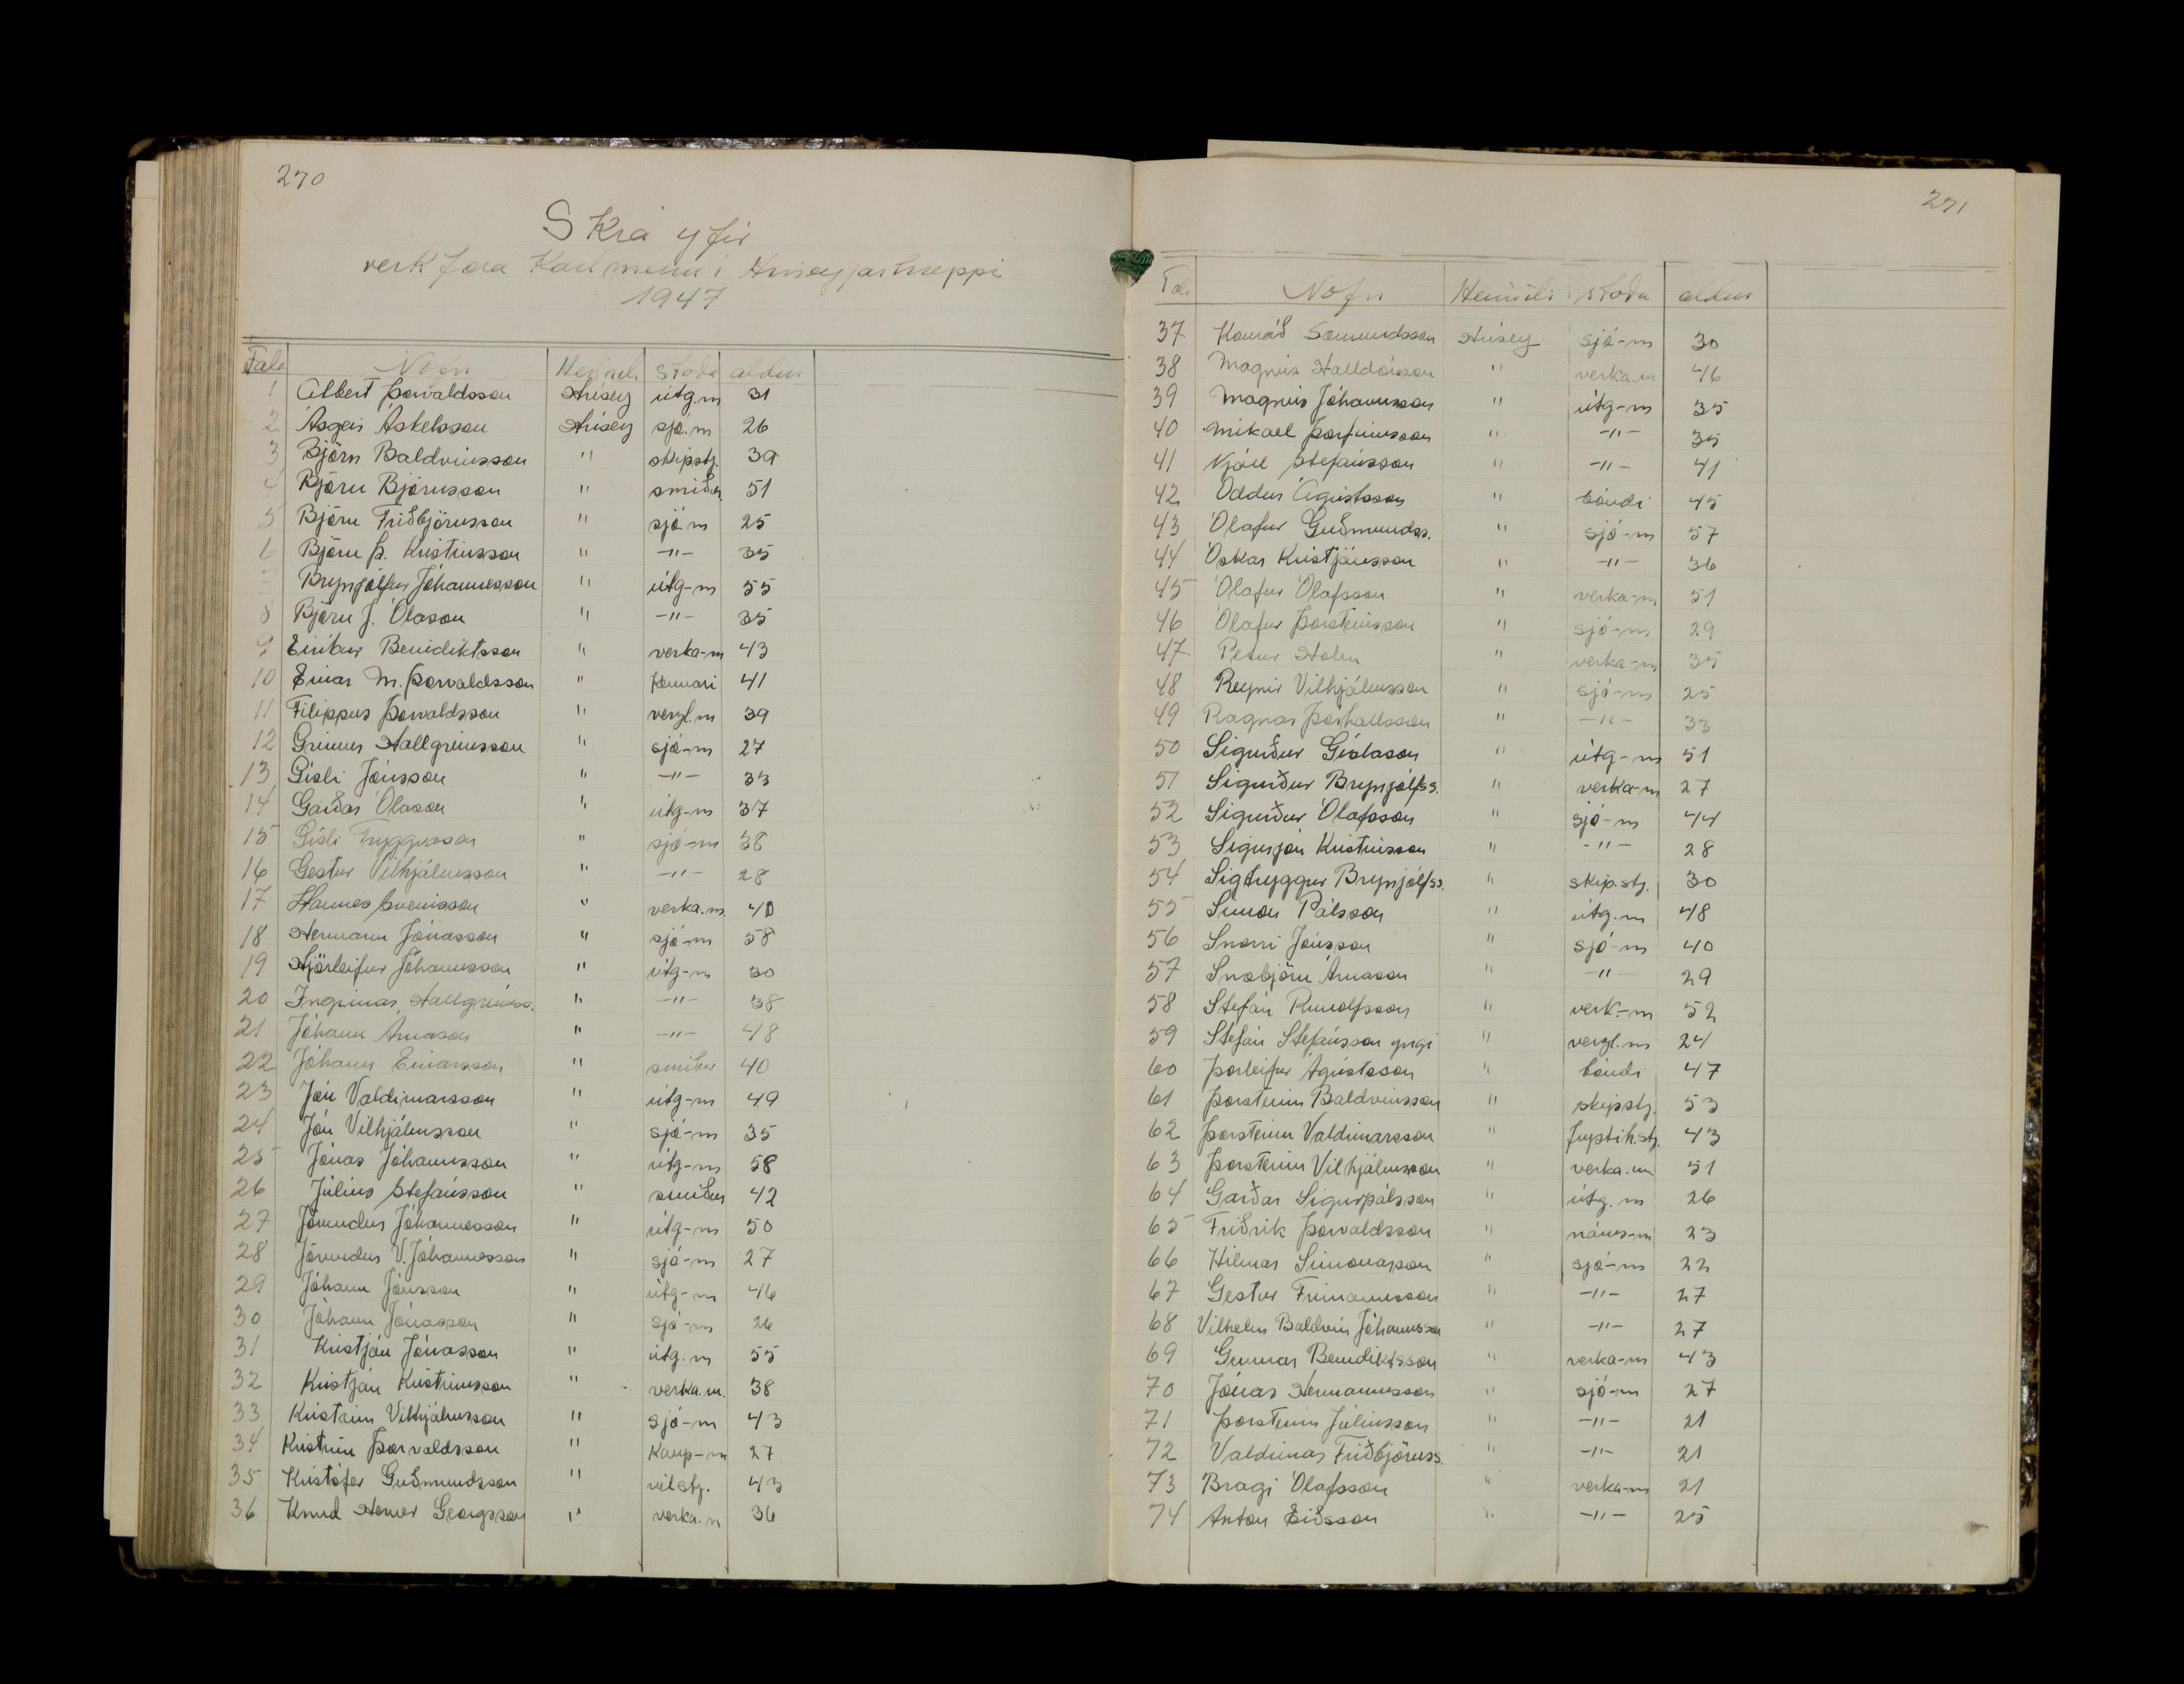 270
Skrá yfir
verkfæra Karlmenn í Hríseyjarhreppi
1947
Tala Nöfn Heimili staða aldur
1 Albert Þorvaldsson Hrísey útg.m 31
2 Ásgeir Áskelsson Hrísey sjó.m 26
3 Björn Baldvinsson " skipstj. 39
4 Björn Björnsson " smiður 51
5 Björn Friðbjörnsson " sjó-m 25
6 Björn Þ. Kristinsson " -"- 35
7 Brynjólfur Jóhannesson " útg-m 55
8 Björn J. Ólason " -"- 35
9 Eiríkur Benidiktsson " verka-m 43
10 Einar M. Þorvaldsson " kennari 41
11 Filippus Þorvaldsson " verzl.m 39
12 Grímur Hallgrímsson " sjó-m 27
13 Gísli Jónsson " -"- 33
14 Garðar Ólason " útg-m 37
15 Gísli Tryggvason " sjó-m 38
16 Gestur Vilhjálmsson " -"- 28
17 Hannes " verka.m. 40
18 Hermann Jónasson " sjó-m 58
19 Hjörleifur Jóhannsson " útg-m 30
20 Ingimar Hallgrímss. " -"- 38
21 Jóhann Árnason " -"- 48
22 Jóhann Einarsson " smiður 40
23 Jón Valdimarsson " útg-m 49
24 Jón Vilhjálmsson " sjó-m 35
25 Jónas Jóhannsson " útg-m 58
26 Júlíus Stefánsson " smiður 42
27 Jörundur Jóhannesson " útg-m 50
28 Jörundur V. Jóhannesson " sjó-m 27
29 Jóhann Jónsson " útg-m 46
30 Jóhann Jónasson " sjó-m 26
31 Kristján Jónasson " útg.m 55
32 Kristján Kristinsson " verka.m. 38
33 Kristinn Vilhjálmsson " sjó-m 43
34 Kristinn Þorvaldsson " Kaup-m 27
35 Kristófer Guðmundsson " vélstj. 43
36 Knud Georgsson " verka.m 36
271
Tala Nöfn Heimili staða aldur
37 Konráð Sæmundsson Hrísey sjó-m 30
38 Magnús Halldórsson " verka.m 46
39 Magnús Jóhannsson " útg-m 35
40 Mikael Þorfinnsson " -"- 35
41 Njáll Stefánsson " -"- 41
42 Oddur Ágústsson " bóndi 45
43 Ólafur Guðmunds. " sjó-m 57
44 Óskar Kristjánsson " -"- 36
45 Ólafur Ólafsson " verka-m 51
46 Ólafur Þorsteinsson " sjó-m 29
47 Petur Holm " verka-m 35
48 Reynir Vilhjálmsson " sjó-m 25
49 Ragnar Þórhallsson " -"- 33
50 Sigurður Gíslason " útg-m 51
51 Sigurður Brynjólfss. " verka-m 27
52 Sigurður Ólafsson " sjó-m 44
53 Sigurjón Kristinsson " -"- 28
54 Sigtryggur Brynjólfss. " skip.stj. 30
55 Símon Pálsson " útg.m 48
56 Snorri Jónsson " sjó-m 40
57 Snæbjörn Árnason " -"- 29
58 Stefán Runólfsson " verk-m 52
59 Stefán Stefánsson yngi " verzl.m 24
60 Þorleifur Ágústsson " bóndi 47
61 Þorsteinn Baldvinsson " skipstj. 53
62 Þorsteinn Valdimarsson " frystih.stj. 43
63 Þorsteinn Vilhjálmsson " verka.m. 51
64 Garðar Sigurpálsson " útg.m 26
65 Friðrik Þorvaldsson " náms-m 23
66 Hilmar Símonarson " sjó-m 22
67 Gestur Frímannsson " -"- 27
68 Vilhelm Baldvin Jóhannsson " -"- 27
69 Gunnar Bendiktsson " verka-m 43
70 Jónas Hermannsson " sjó-m 27
71 Þorsteinn Júlíusson " -"- 21
72 Valdimar Friðbjörnss. " -"- 21
73 Bragi Ólafsson " verka-m 21
74 Anton Eiðsson " -"- 25